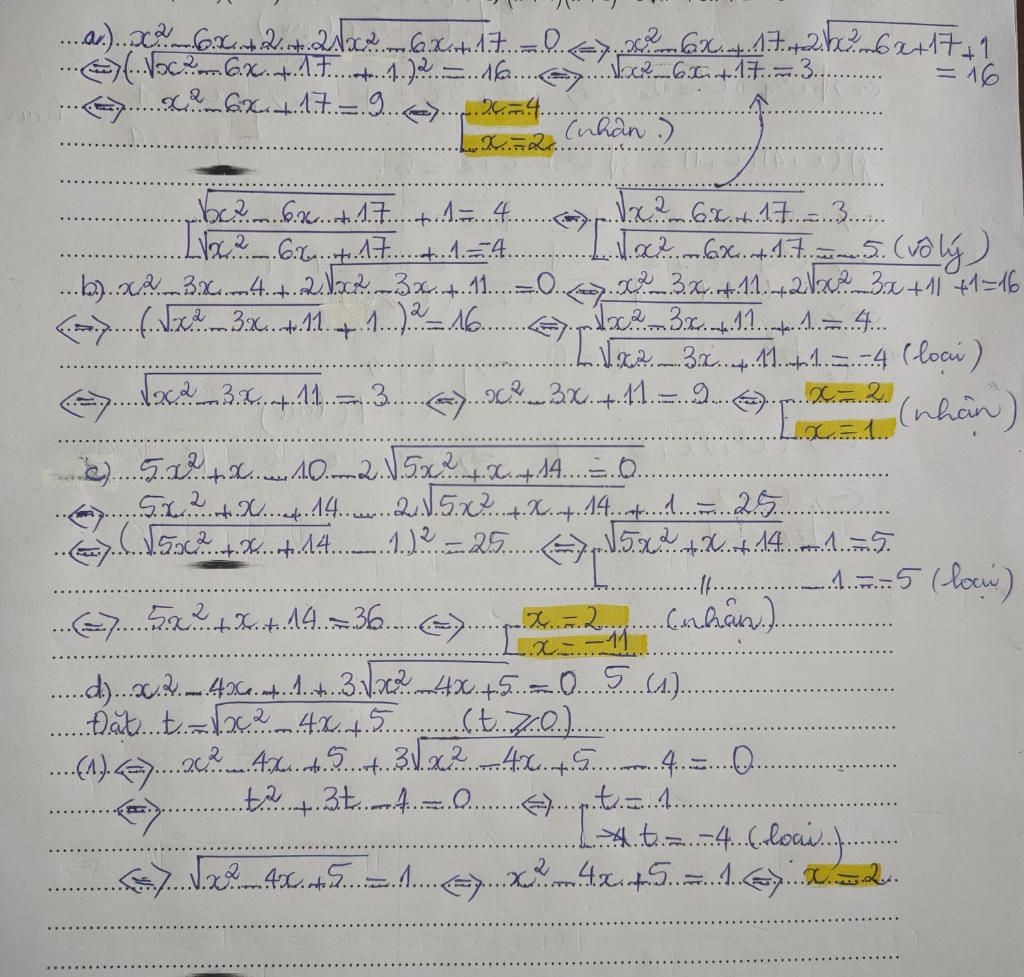 a) x² - 6x + 2 + 2√(x² - 6x + 17) = 0 <=> x² - 6x + 17 + 2√(x² - 6x + 17) + 1 = 16
<=> (√(x² - 6x + 17) + 1)² = 16 <=> √(x² - 6x + 17) = 3
<=> x² - 6x + 17 = 9 <=> [ x = 4
x = 2 (nhận)
[ √(x² - 6x + 17) + 1 = 4 <=> [ √(x² - 6x + 17) = 3
√(x² - 6x + 17) + 1 = -4 √(x² - 6x + 17) = -5 (vô lý)
b) x² - 3x - 4 + 2√(x² - 3x + 11) = 0 <=> x² - 3x + 11 + 2√(x² - 3x + 11) + 1 = 16
<=> (√(x² - 3x + 11) + 1)² = 16 <=> [ √(x² - 3x + 11) + 1 = 4
√(x² - 3x + 11) + 1 = -4 (loại)
<=> √(x² - 3x + 11) = 3 <=> x² - 3x + 11 = 9 <=> [ x = 2
x = 1 (nhận)
c) 5x² + x - 10 - 2√(5x² + x + 14) = 0
<=> 5x² + x + 14 - 2√(5x² + x + 14) + 1 = 25
<=> (√(5x² + x + 14) - 1)² = 25 <=> [ √(5x² + x + 14) - 1 = 5
" - 1 = -5 (loại)
<=> 5x² + x + 14 = 36 <=> [ x = 2 (nhận)
x = -11
d) x² - 4x + 1 + 3√(x² - 4x + 5) = 0 5 (1)
Đặt t = √(x² - 4x + 5) (t ⩾ 0)
(1) <=> x² - 4x + 5 + 3√(x² - 4x + 5) - 4 = 0
<=> t² + 3t - 4 = 0 <=> [ t = 1
t = -4 (loại)
<=> √(x² - 4x + 5) = 1 <=> x² - 4x + 5 = 1 <=> x = 2